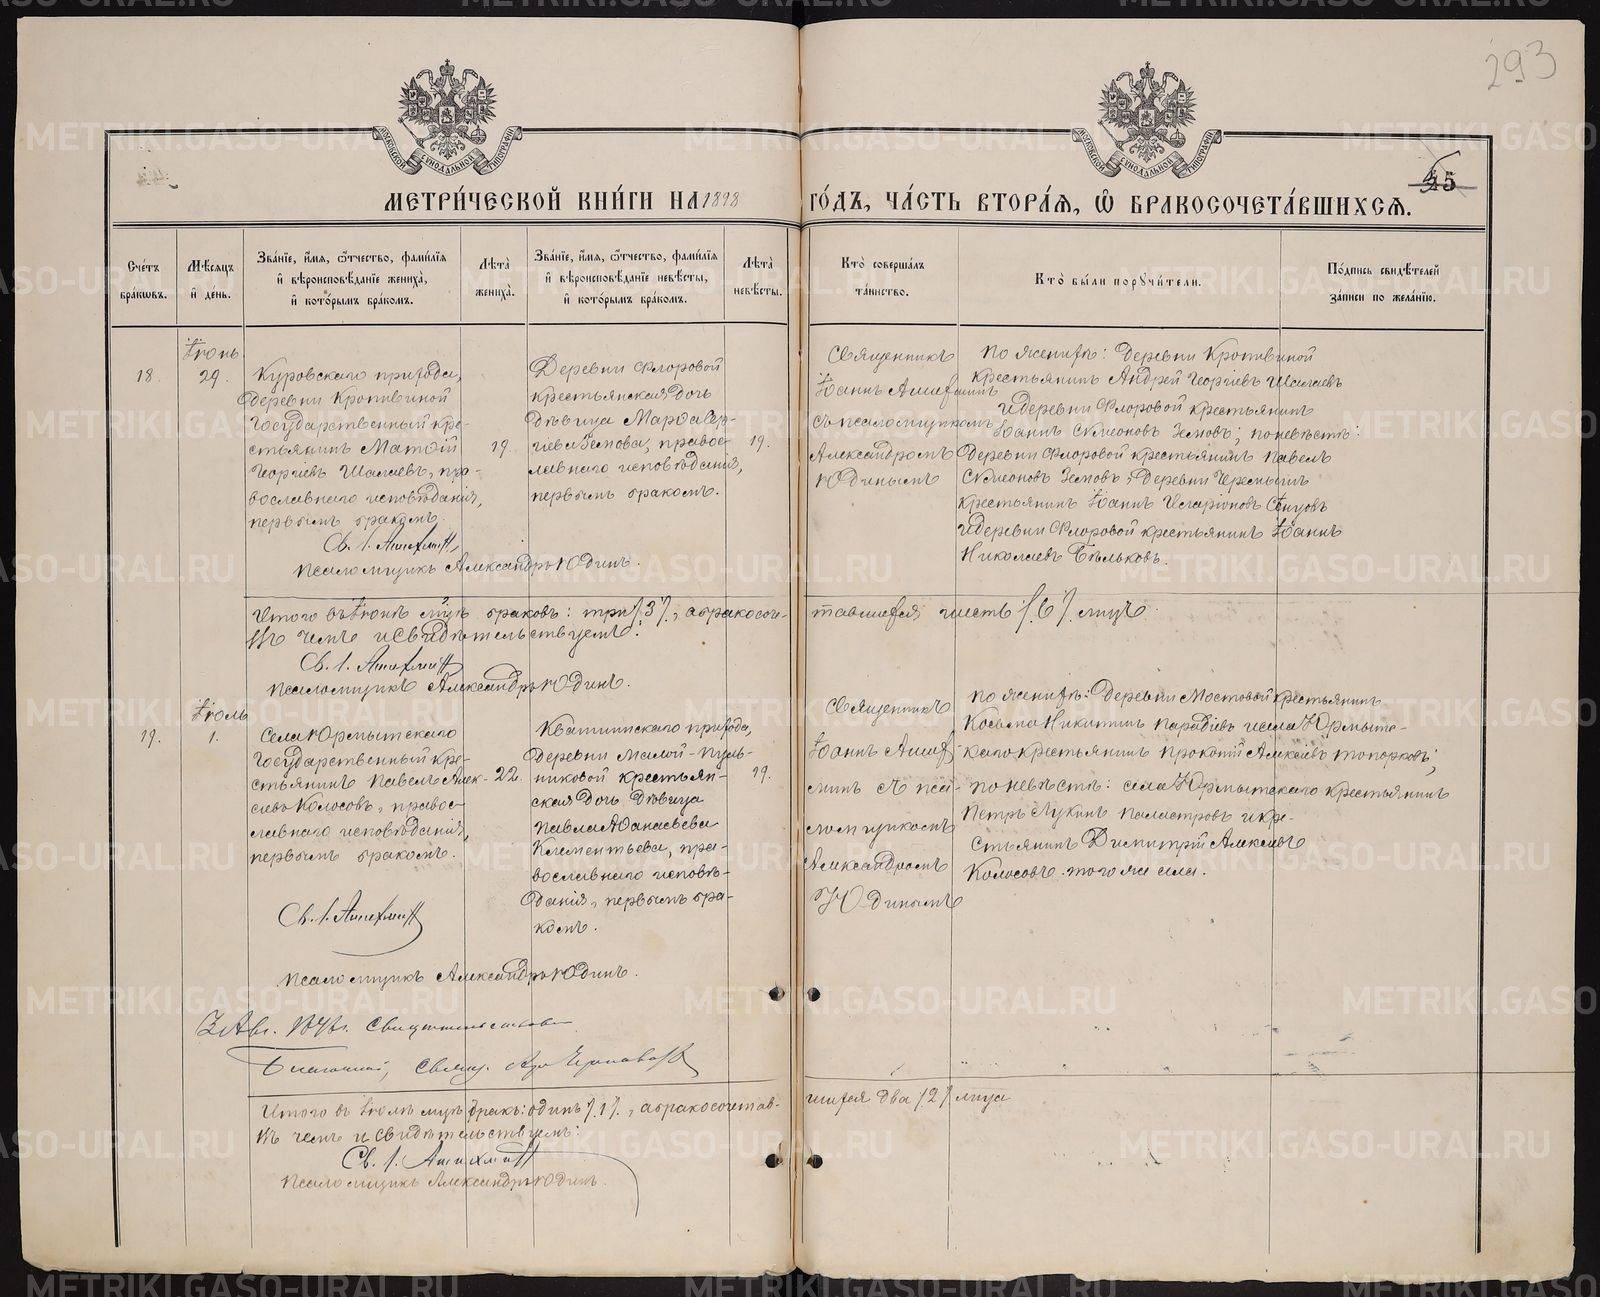 293
МОСКОВСКОЙ СѴНОДАЛЬНОЙ ТИПОГРАФІИ
МОСКОВСКОЙ СѴНОДАЛЬНОЙ ТИПОГРАФІИ
МЕТРИ́ЧЕСКОЙ КНИ́ГИ НА 1898 ГО́ДЪ, ЧА́СТЬ ВТОРА́Я, Ѽ БРАКОСОЧЕТА́ВШИХСЯ.
45
Сче́тъ бра́кѡвъ.
Мѣ́сяцъ и҆ де́нь.
Зва́нїе, и҆́мя, ѻ҆́тчество, фами́лїя и҆ вѣроисповѣ́данїе жениха̀, и҆ кото́рымъ бра́комъ.
Лѣ́та жениха̀.
Зва́нїе, и҆́мя, ѻ҆́тчество, фами́лїя и҆ вѣроисповѣ́данїе невѣ́сты, и҆ кото́рымъ бра́комъ.
Лѣ́та невѣ́сты.
Кто̀ соверша́лъ та́инство.
Кто̀ бы́ли порꙋчи́тели.
По́дпись свидѣ́телей за́писи по жела́нїю.
18.
Іюнь
29.
Куровскаго прихода,
Деревни Кропивиной
государственный кре-
стьянинъ Матѳій
Георгіевъ Шалаевъ, пра-
вославнаго исповѣданія,
первымъ бракомъ.
19.
Деревни Флоровой
крестьянская дочь
дѣвица Марѳа Сер-
гіева Земова, правос-
лавнаго исповѣданія,
первымъ бракомъ.
19.
Священникъ
Іоаннъ Ашихминъ
съ псаломщикомъ
Александромъ
Юдинымъ
По женихѣ: Деревни Кропивиной
крестьянинъ Андрей Георгіевъ Шалаевъ
и деревни Флоровой крестьянинъ
Іоаннъ Симеоновъ Земовъ; по невѣстѣ:
Деревни Флоровой крестьянинъ Павелъ
Симеоновъ Земовъ, деревни Черемыш
крестьянинъ Іоаннъ Иларіоновъ
и деревни Флоровой крестьянинъ Іоаннъ
Николаевъ Бѣльковъ.
Св. І. Ашихминъ
Псаломщикъ Александръ Юдинъ.
Итого въ Іюнѣ м-цѣ браковъ: три /3/, а бракосоче-
тавшихся шесть /6/ лицъ.
Въ чемъ и свидѣтельствуемъ:
Св. І. Ашихминъ
Псаломщикъ Александръ Юдинъ.
19.
Іюль
1.
Села Юрмытскаго
государственный кре-
стьянинъ Павелъ Алек-
сѣевъ Колосовъ, правос-
лавнаго исповѣданія,
первымъ бракомъ.
22.
Квашнинскаго прихода,
деревни Малой-Пуль-
никовой крестьян-
ская дочь дѣвица
Павла Аѳанасьева
Клементьева, пра-
вославнаго исповѣ-
данія, первымъ бра-
комъ.
19.
Священникъ
Іоаннъ Аших-
минъ съ пса-
ломщикомъ
Александромъ
Юдинымъ
По женихѣ: Деревни Мостовой крестьянинъ
Косьма Никитинъ и села Юрмытс-
каго крестьянинъ Прокопій Алексѣевъ Топорковъ;
по невѣстѣ: села Юрмытскаго крестьянинъ
Петръ Лукинъ и кре-
стьянинъ Димитрій Алексѣевъ
Колосовъ того же села.
Св. І. Ашихминъ
Псаломщикъ Александръ Юдинъ.
3 Авг. свидѣтельствовалъ
Благочинный, Свящ.
Итого въ Іюлѣ м-цѣ бракъ: одинъ /1/, а бракосочетав-
шихся два /2/ лица
Въ чемъ и свидѣтельствуемъ:
Св. І. Ашихминъ
Псаломщикъ Александръ Юдинъ.
METRIKI.GASO-URAL.RU